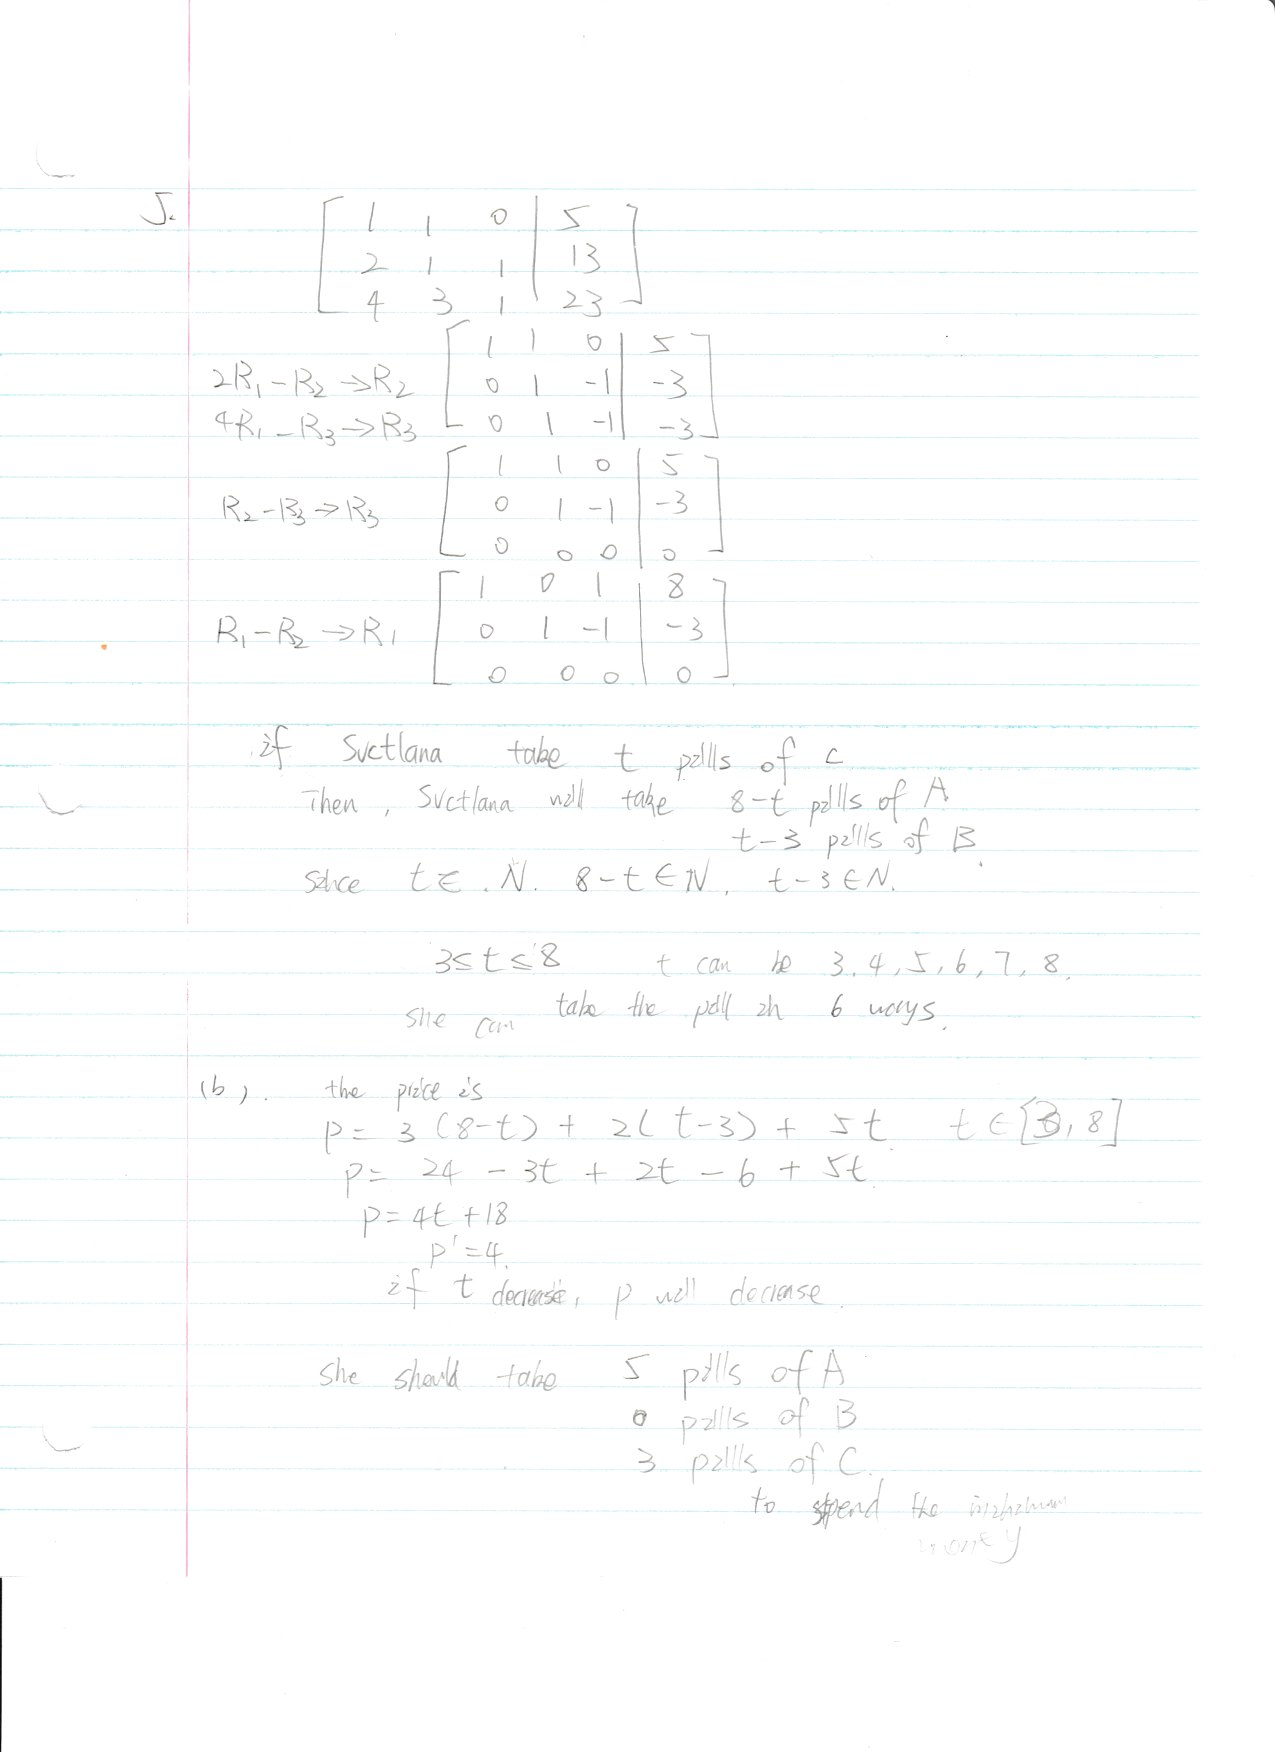 5.
[ 1 1 0 | 5 ]
[ 2 1 1 | 13 ]
[ 4 3 1 | 23 ]
[ 1 1 0 | 5 ]
2R₁ - R₂ → R₂ [ 0 1 -1 | -3 ]
4R₁ - R₃ → R₃ [ 0 1 -1 | -3 ]
[ 1 1 0 | 5 ]
R₂ - R₃ → R₃ [ 0 1 -1 | -3 ]
[ 0 0 0 | 0 ]
[ 1 0 1 | 8 ]
R₁ - R₂ → R₁ [ 0 1 -1 | -3 ]
[ 0 0 0 | 0 ]
if Svetlana take t pills of c
Then, Svetlana will take 8-t pills of A
t-3 pills of B.
since t ∈ N. 8-t ∈ N, t-3 ∈ N.
3 ≤ t ≤ 8 t can be 3, 4, 5, 6, 7, 8.
she can take the pill in 6 ways.
(b). the price is
p = 3(8-t) + 2(t-3) + 5t t ∈ [3, 8]
p = 24 - 3t + 2t - 6 + 5t.
p = 4t + 18
p' = 4.
if t decrease, p will decrease.
she should take 5 pills of A
0 pills of B
3 pills of C.
to spend the minimum
money